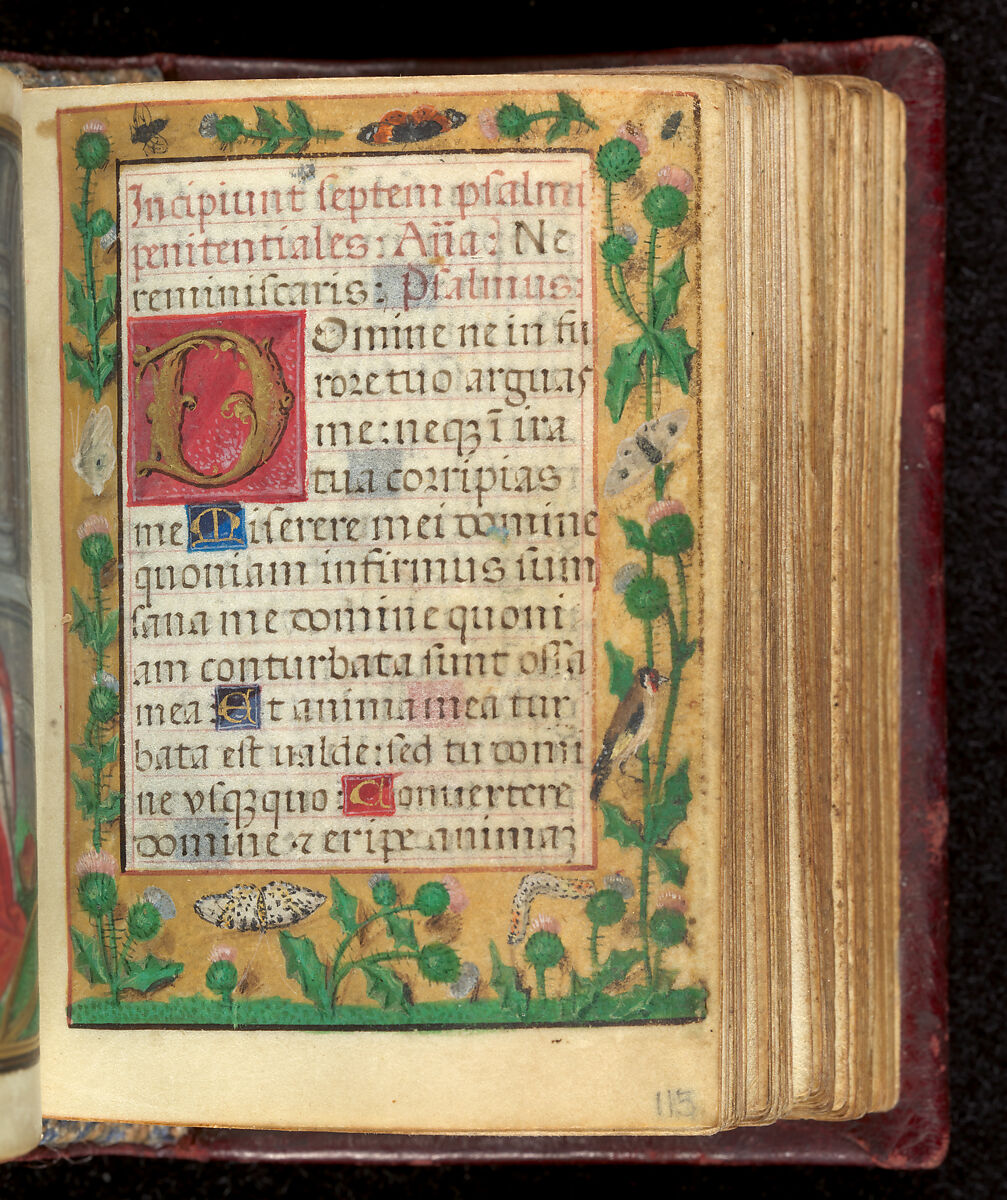 Incipiunt septem psalmi
penitentiales: An̄a: Ne
reminiscaris: Psalmus:
Domine ne in fu
rore tuo arguas
me: neqꝫ ī ira
tua corripias
me Miserere mei domine
quoniam infirmus sum
sana me domine quoni
am conturbata sunt ossa
mea: Et anima mea tur
bata est ualde: sed tu domi
ne vsqꝫ quo: Conuertere
domine ⁊ eripe animaꝫ
115